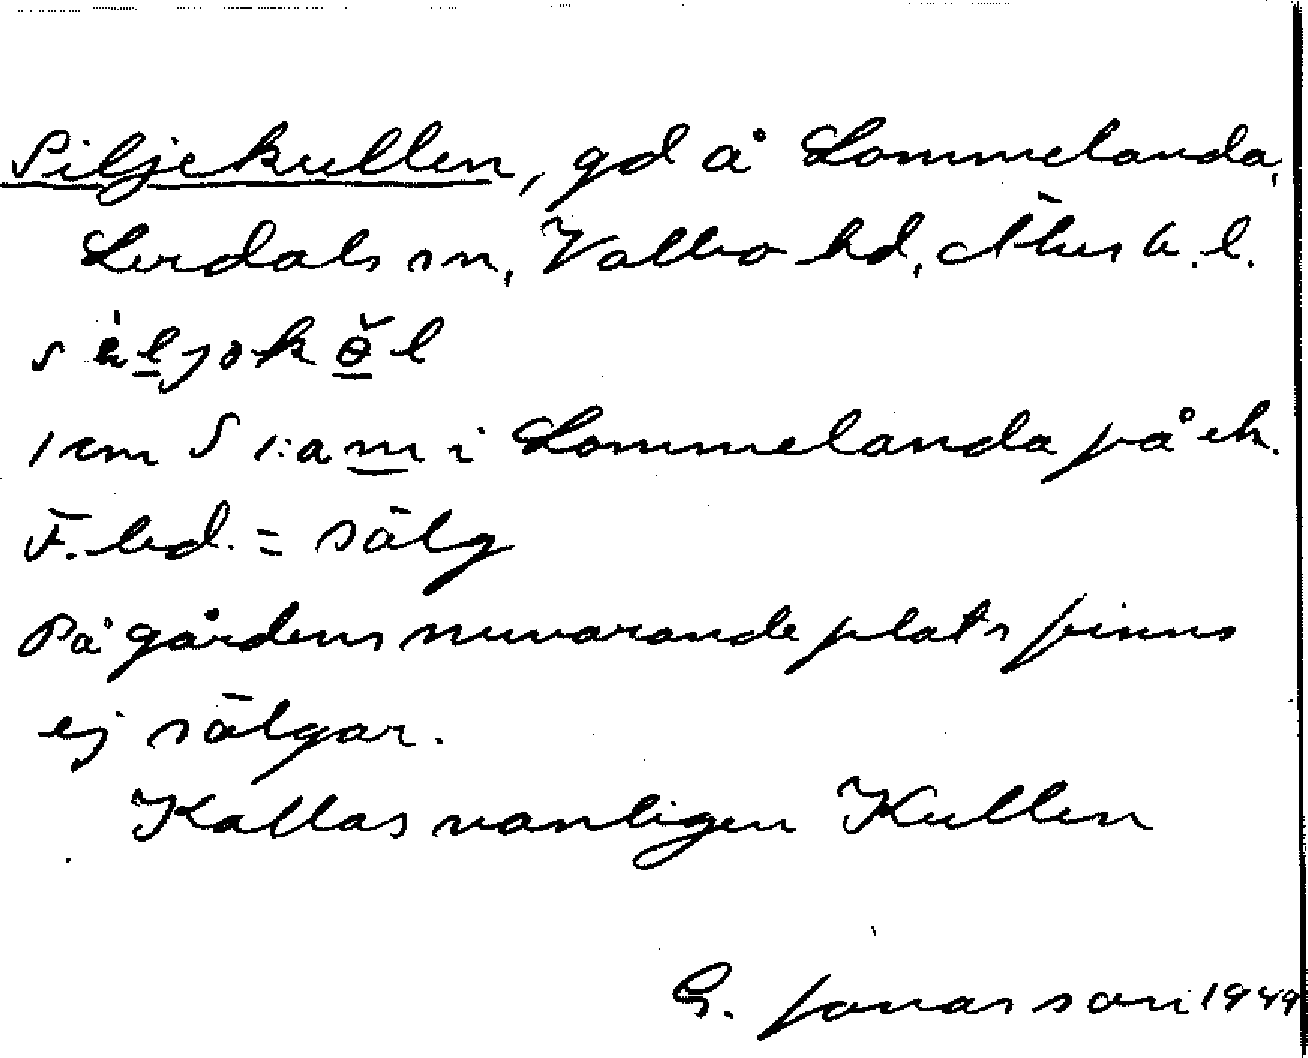 Siljekullen, gd å Lommelanda,
Lerdals sn, Valbo hd, Älvsb. l.
1 cm S 1:a m i Lommelanda på ek.
F. led. = sälg
På gårdens nuvarande plats finns
ej sälgar.
Kallas vanligen Kullen
G. Jonasson 1949